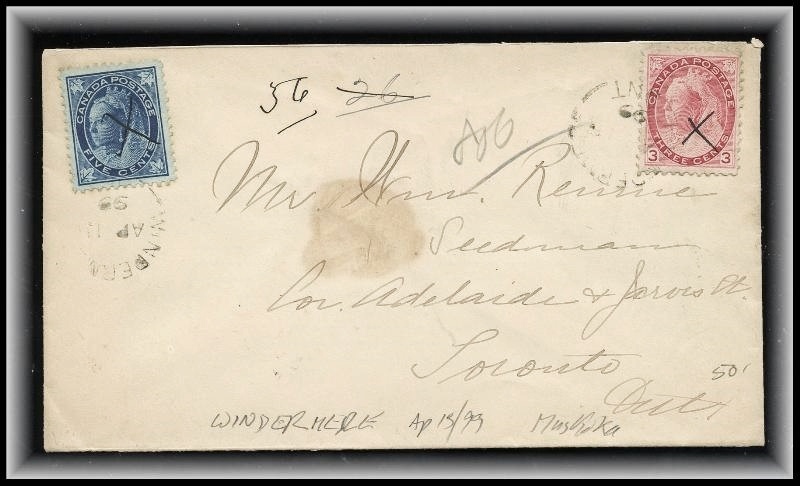 CANADA POSTAGE
FIVE CENTS
56 26
CANADA POSTAGE
3 THREE CENTS 3
NT
99
WINDERM
AP 1
99
Mr. Wm. Rennie
Seedsman
Cor. Adelaide & Jarvis St.
Toronto
Ont
50'
WINDERMERE Ap 13/99 Muskoka